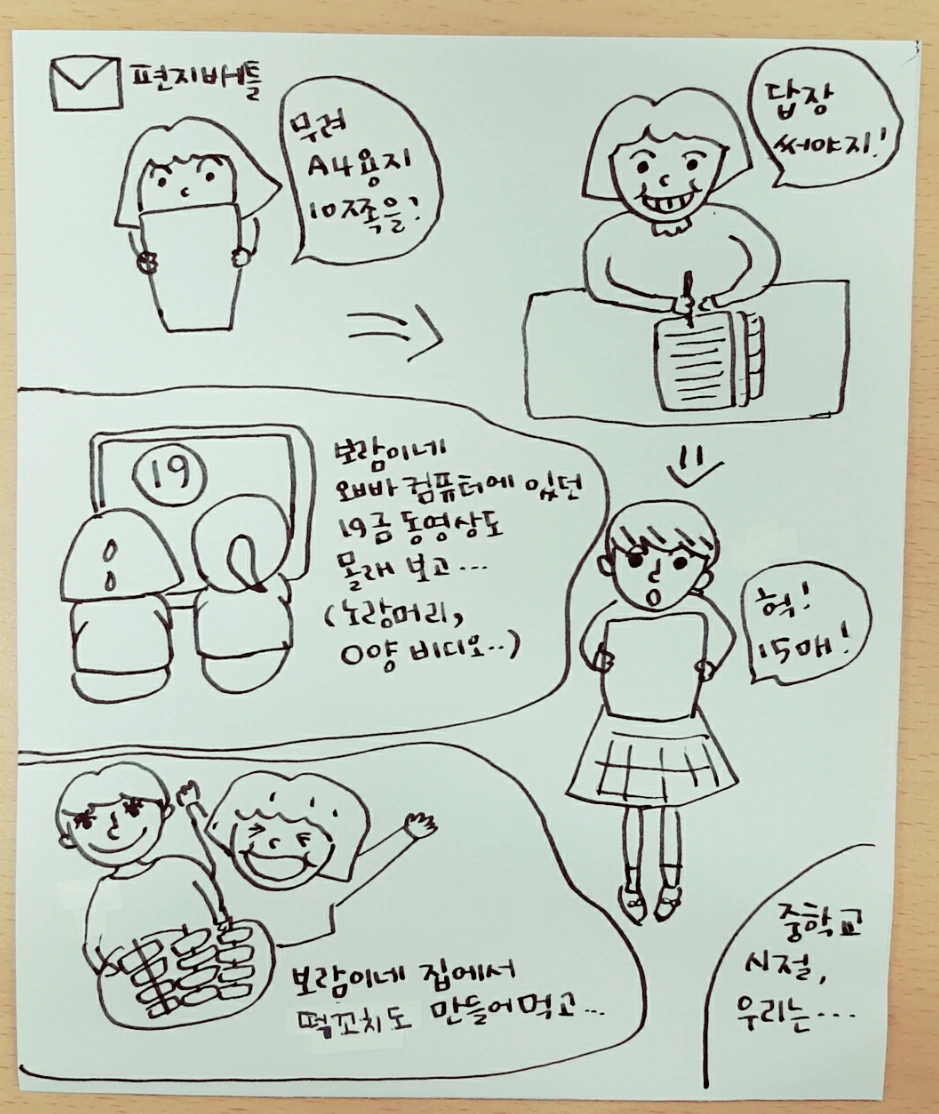 편지배틀
무려
A4용지
10쪽을?
답장
써야지!
헉!
15매!
19
보람이네
오빠 컴퓨터에 있던
19금 동영상도
몰래 보고...
(노랑머리,
O양 비디오..)
보람이네 집에서
떡꼬치도 만들어먹고...
중학교
시절,
우리는...